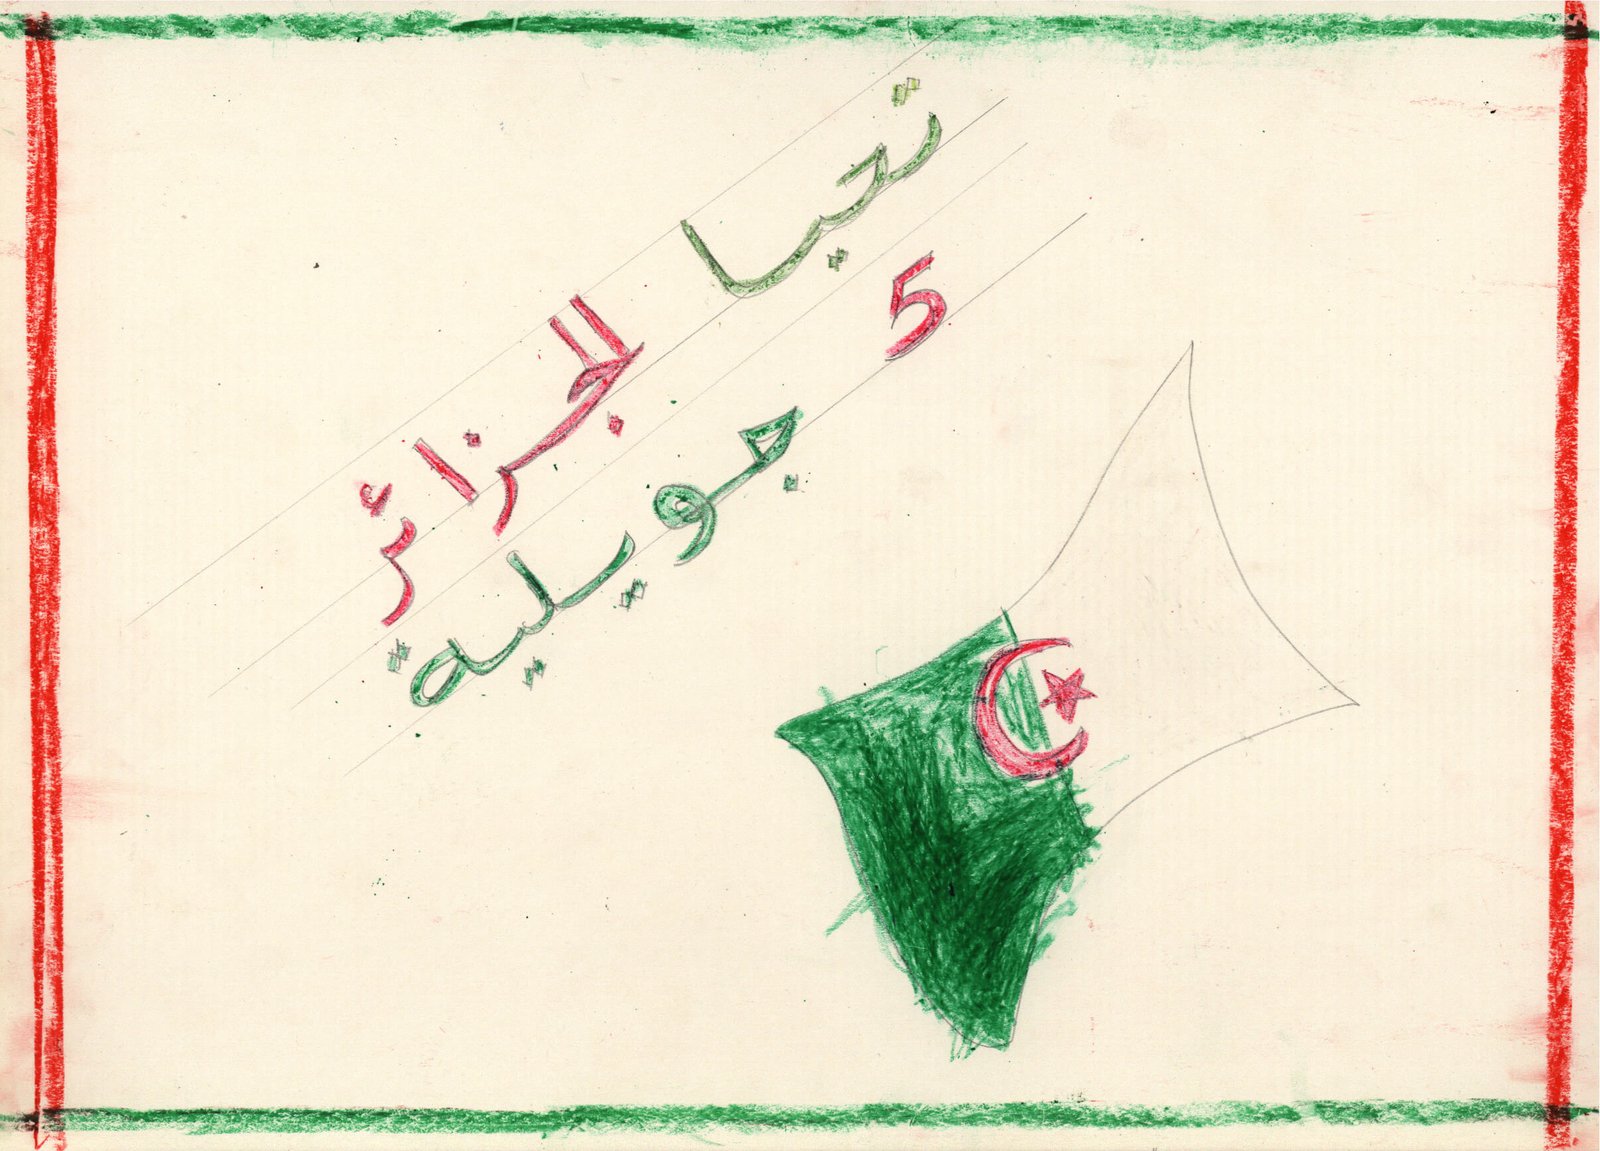 تحيا الجزائر
5 جويلية